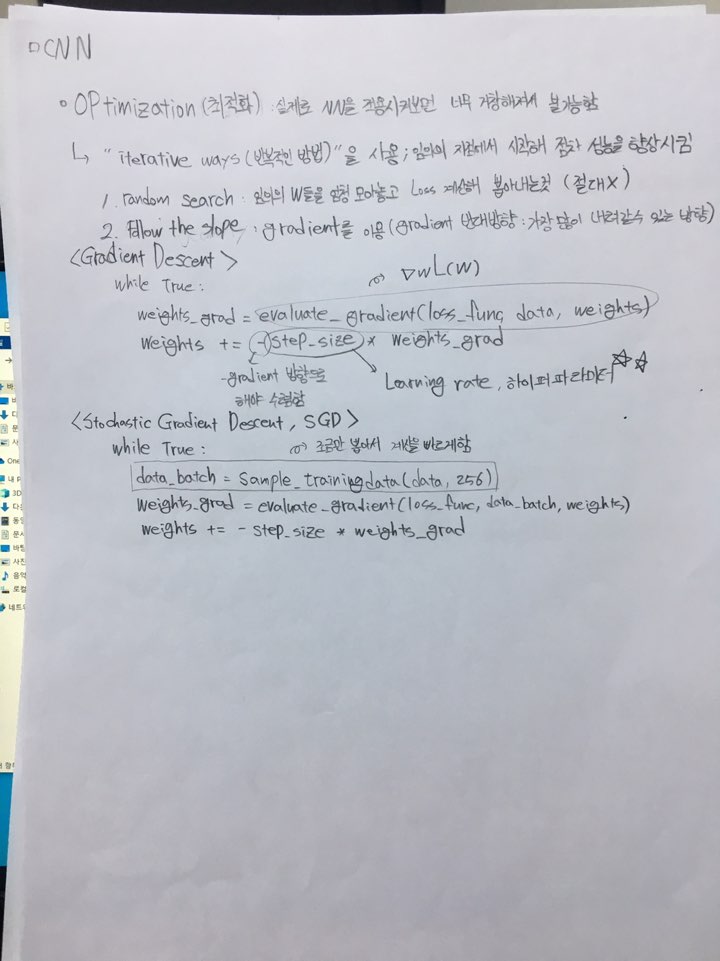 □ CNN
∘ OPtimization (최적화) : 실제로 NN을 적용시켜보면 너무 거창해져서 불가능함
↳ "iterative ways (반복적인 방법)" 을 사용 ; 임의의 지점에서 시작해 점차 성능을 향상시킴
1. random search : 임의의 W들을 엄청 모아놓고 Loss 계산해 뽑아내는것 (절대X)
2. Follow the slope : gradient를 이용 (gradient 반대방향 : 가장 많이 내려갈수 있는 방향)
<Gradient Descent>
∇wL(W)
while True :
weights_grad = evaluate_gradient(loss_func, data, weights)
weights += (-)step_size * weights_grad
-gradient 방향으로
해야 수렴함
Learning rate, 하이퍼파라미터 ☆☆
<Stochastic Gradient Descent, SGD>
while True : 조금만 뽑아서 계산을 빠르게함
data_batch = sample_training_data(data, 256)
weights_grad = evaluate_gradient(loss_func, data_batch, weights)
weights += - step_size * weights_grad